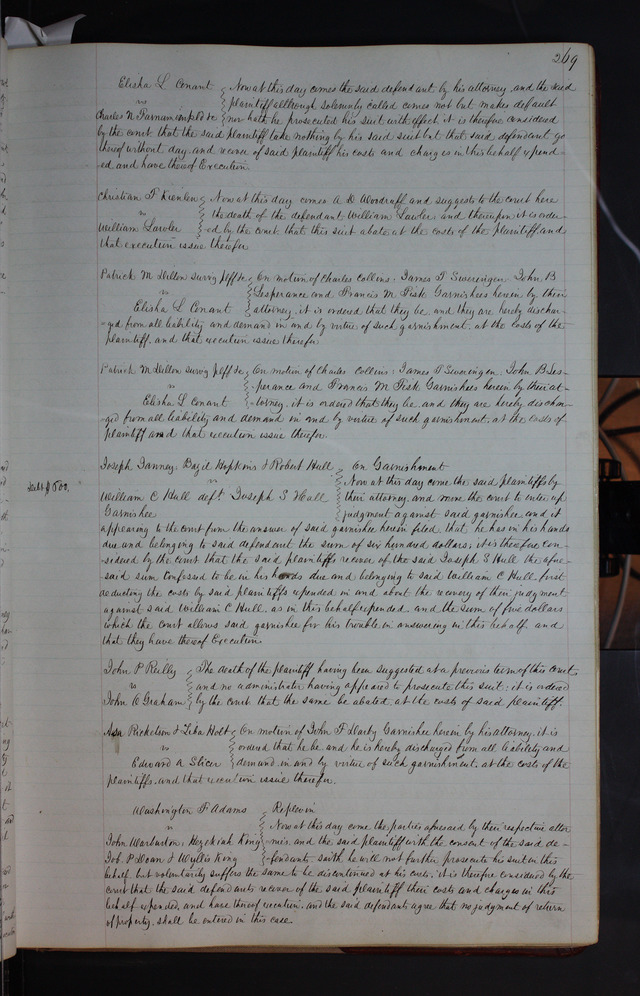 269
Elisha L Conant Now at this day comes the said defendant by his attorney, and the said
vs plaintiff although solemnly called comes not but makes default
Charles N Farnum impl'd &c nor hath he prosecuted his suit with effect it is therefore considered
by the court that the said plaintiff take nothing by his said suit but that said defendant go
thereof without day, and recover of said plaintiff his costs and charges in this behalf expend-
ed and have thereof Execution.
Christian F Kienlen Now at this day comes A D Woodruff and suggests to the court here
vs the death of the defendant William Lawler, and thereupon it is order-
William Lawler ed by the court that this suit abate at the costs of the plaintiff and
that execution issue therefor
Patrick M Dillon surviv'g plff &c On motion of Charles Collins, James T Sweringen, John B
vs Lesperance and Francis M Fisk Garnishees herein by their
Elisha L Conant attorney, it is ordered that they be, and they are hereby dischar-
ged from all liability and demand in and by virtue of such garnishment, at the costs of the
plaintiff, and that execution issue therefor
Patrick M Dillon surviv'g plff &c On motion of Charles Collins, James T Sweringen, John B Les-
vs perance and Francis M Fisk Garnishees herein by their at-
Elisha L Conant torney, it is ordered that they be, and they are hereby dischar-
ged from all liability and demand in and by virtue of such garnishment, at the costs of
plaintiff and that execution issue therefor.
Joseph Tanney, Bazil Hopkins & Robert Hull On Garnishment
vs Now at this day come the said plaintiffs by
William C Hull deft. Joseph S Hull their attorney, and move the court to enter up
Garnishee judgment against said garnishee, and it
Debt $600.
appearing to the court from the answer of said garnishee herein filed, that he has in his hands
due and belonging to said defendant the sum of six hundred dollars; it is therefore con-
sidered by the court that the said plaintiffs recover of the said Joseph S Hull the afore-
said sum confessed to be in his hands due and belonging to said William C Hull, first
deducting the costs by said plaintiffs expended in and about the recovery of their judgment
against said William C Hull, as in this behalf expended, and the sum of five dollars
which the court allows said garnishee for his trouble in answering in this behalf, and
that they have thereof Execution
John P Reilly The death of the plaintiff having been suggested at a previous term of this court,
vs and no administrator having appeared to prosecute this suit; it is ordered
John O Graham by the court that the same be abated, at the costs of said plaintiff.
Asa Rickelson & Holt On motion of John F Darby Garnishee herein by his attorney, it is
vs ordered that he be and he is hereby discharged from all liability and
Edward A Slicer demand in and by virtue of such garnishment, at the costs of the
plaintiffs, and that execution issue therefor.
Washington F Adams Replevin
vs Now at this day come the parties aforesaid by their respective attor
John Warburton, Hezekiah King neys, and the said plaintiff with the consent of the said de-
Job. P Doan & Wyllis King fendants saith he will not further prosecute his suit in this
behalf, but voluntarily suffers the same to be discontinued at his costs; it is therefore considered by the
court that the said defendants recover of the said plaintiff their costs and charges in this
behalf expended, and have thereof execution, and the said defendants agree that no judgment of return
of property, shall be entered in this case